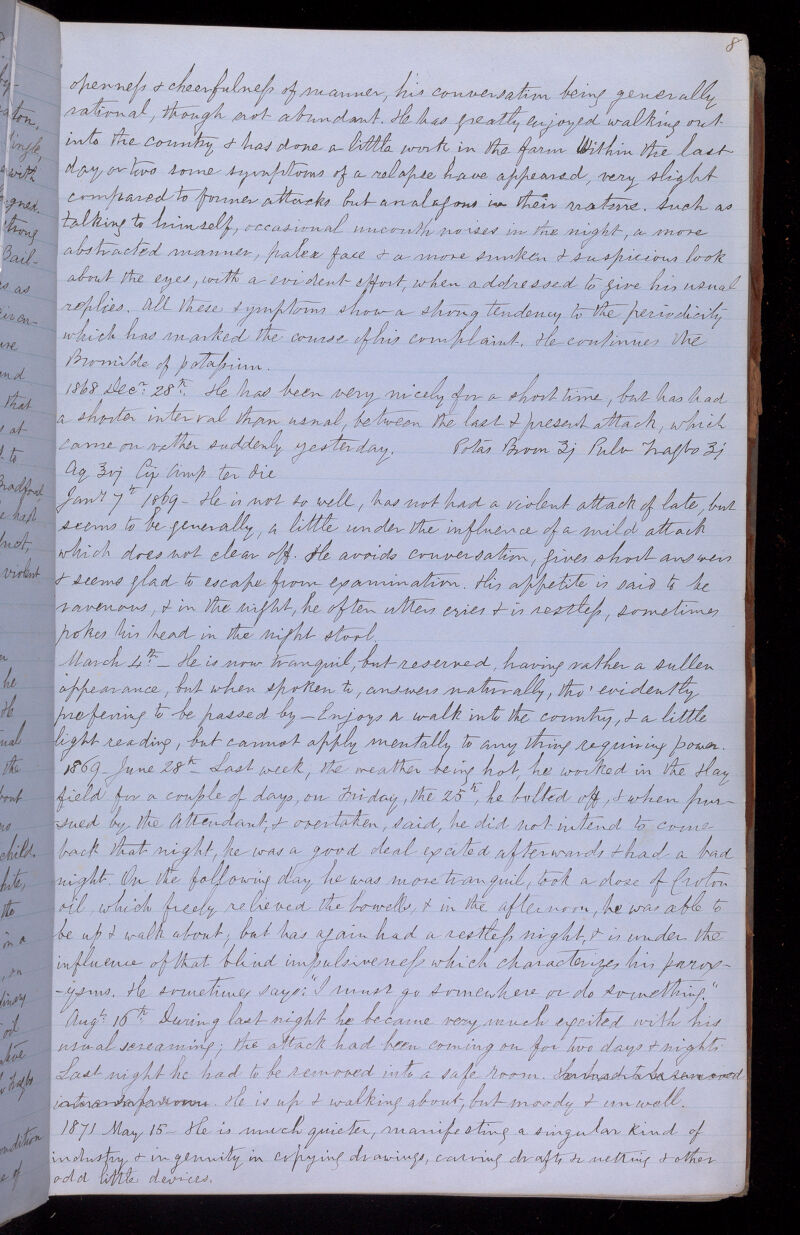 8
openness & cheerfulness of manner, his conversation being generally
rational, though not abundant. He has greatly enjoyed walking out
into the country & has done a little work in the farm Within the last
day or two some symptoms of a relapse have appeared, very slight
compared to former attacks but analagous in their nature. such as
talking to himself, occasional uncouth noises in the night, a more
abstracted manner, paler face & a more sunken & suspicious look
about the eyes, with a evident effort, when addressed to give his usual
replies. All these symptoms show a strong tendency to the periodicity
which has marked the course of his complaint. He continues the
Bromide of potassium.
1868 Decr. 28th. He has been very nicely for a short time, but has had
a shorter interval than usual, between the last & present attack, which
came on rather suddenly yesterday. Potas Brom ʒj Pulv Tragbo ʒj
Aq ʒvj Cij Amp ter die
Jany 7th 1869 - He is not so well, has not had a violent attack of late, but
seems to be generally, a little under the influence of a mild attack
which does not clear off. He avoids conversation, gives short answers
& seems glad to escape from examination. His appetite is said to be
ravenous, & in the night, he often utters cries & is restless, sometimes
pokes his head in the night stool.
March 4th - He is now tranquil, but reserved, having rather a sullen
appearance, but when spoken to, answers naturally, tho' evidently
prefering to be passed by - Enjoys a walk into the country, & a little
light reading, but cannot apply mentally to any thing requiring power.
1869 - June 28th - Last week, the weather being hot, he worked in the Hay
field for a couple of days, on Friday, the 25th, he bolted off, & when pur-
-sued by the Attendant, & overtaken, said, he did not intend to come
back that night, he was a good deal excited afterwards & had a bad
night. On the following day he was more tranquil, took a dose of Croton
oil, which freely relieved the bowells, & in the afternoon, he was able to
be up & walk about, but has again had a restless night, & is under the
influence of that blind impulsiveness which characterizes his parox-
-ysms. He sometimes says; "I must go somewhere or do something."
Augt. 16th During last night he became very much excited with his
usual screaming; the attack had been coming on for two days & nights.
Last night he had to be removed into a safe room. He had to be removed
into a safe room. He is up & walking about, but moody & unwell.
1871 May 15 - He is much quieter, manifesting a singular kind of
industry & ingenuity in copying drawings, carving drafts & netting & other
odd little devices.